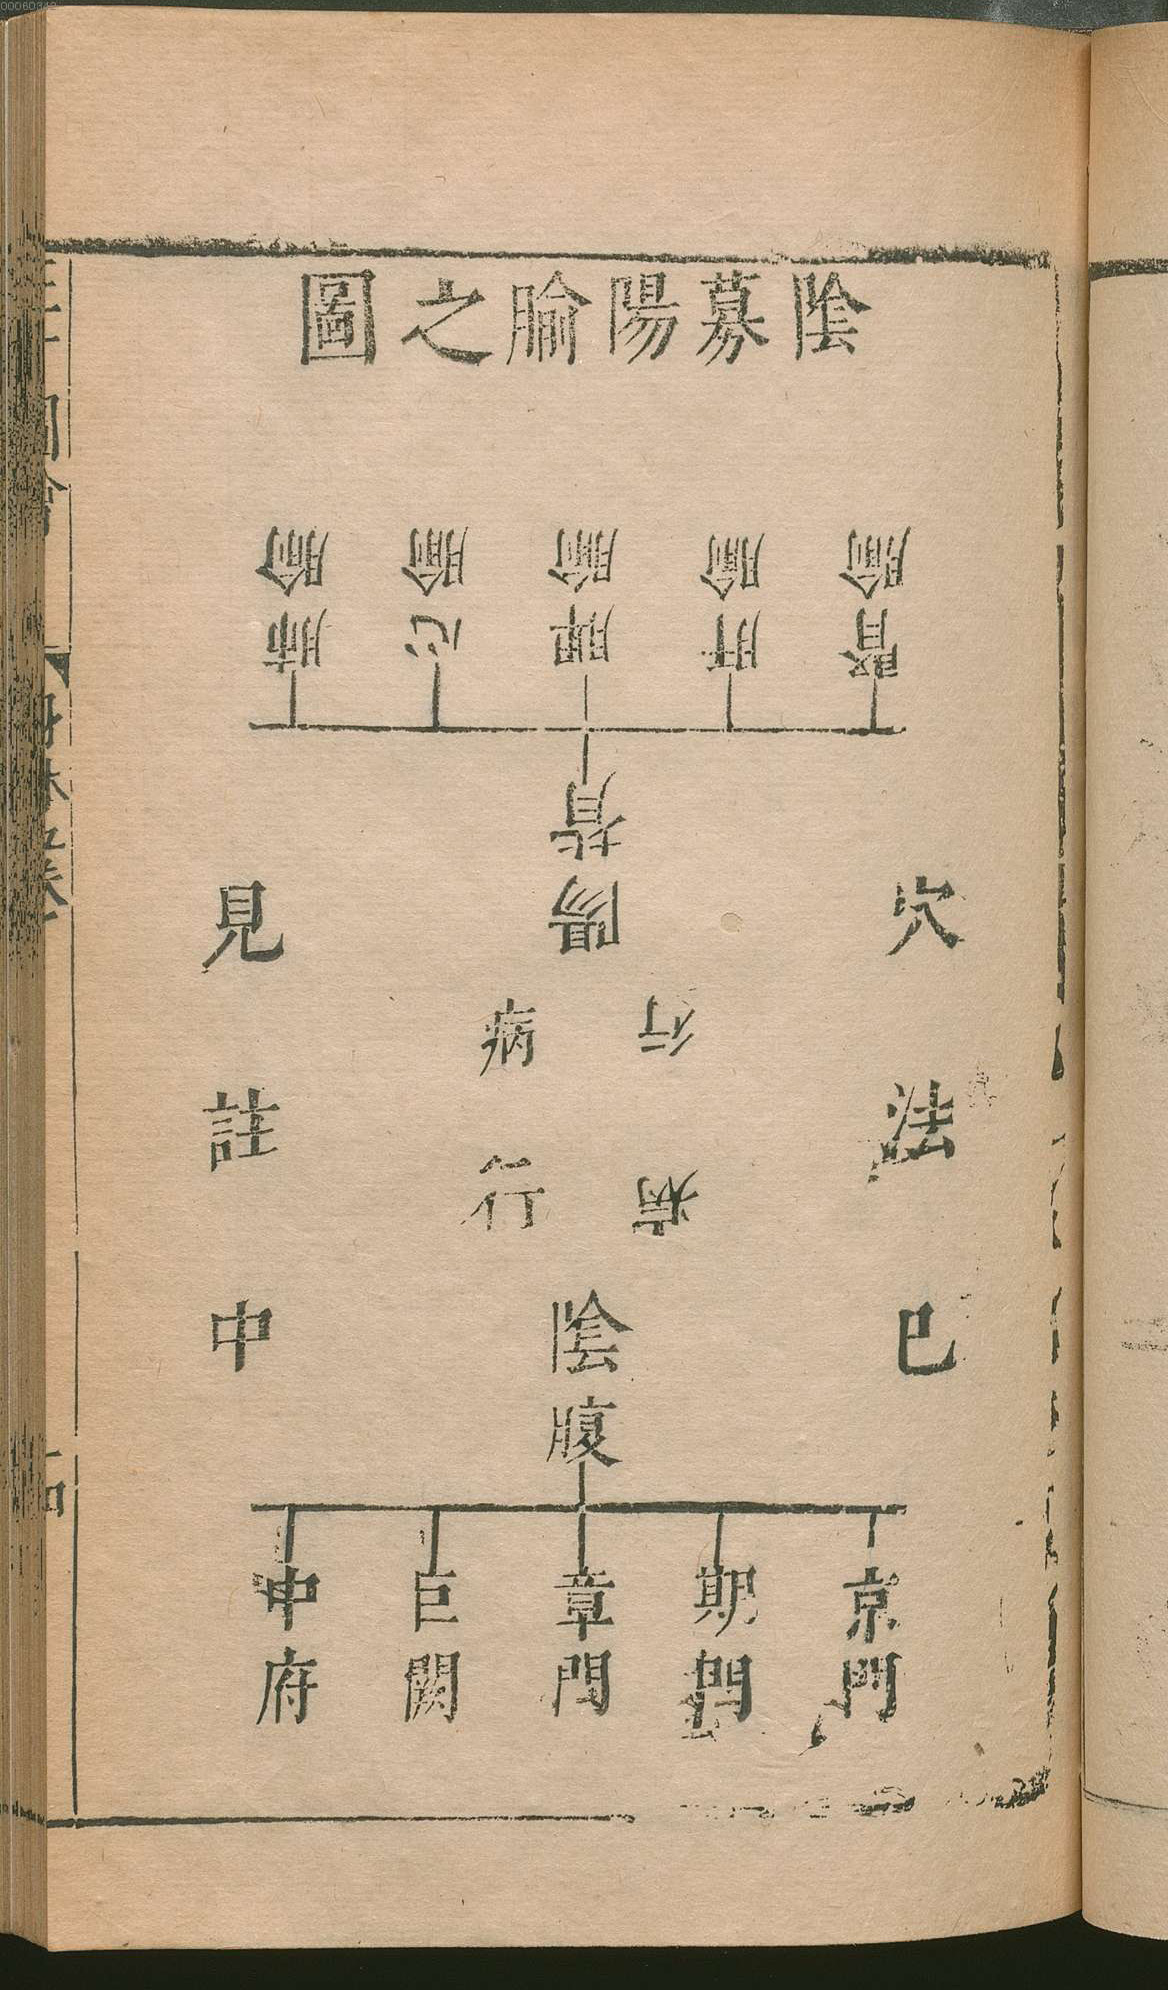 00060342
陰募陽腧之圖
腎腧
肝腧
脾腧
心腧
肺腧
陽背
行病
病行
陰腹
穴法已
見註中
京門
期門
章門
巨闕
中府